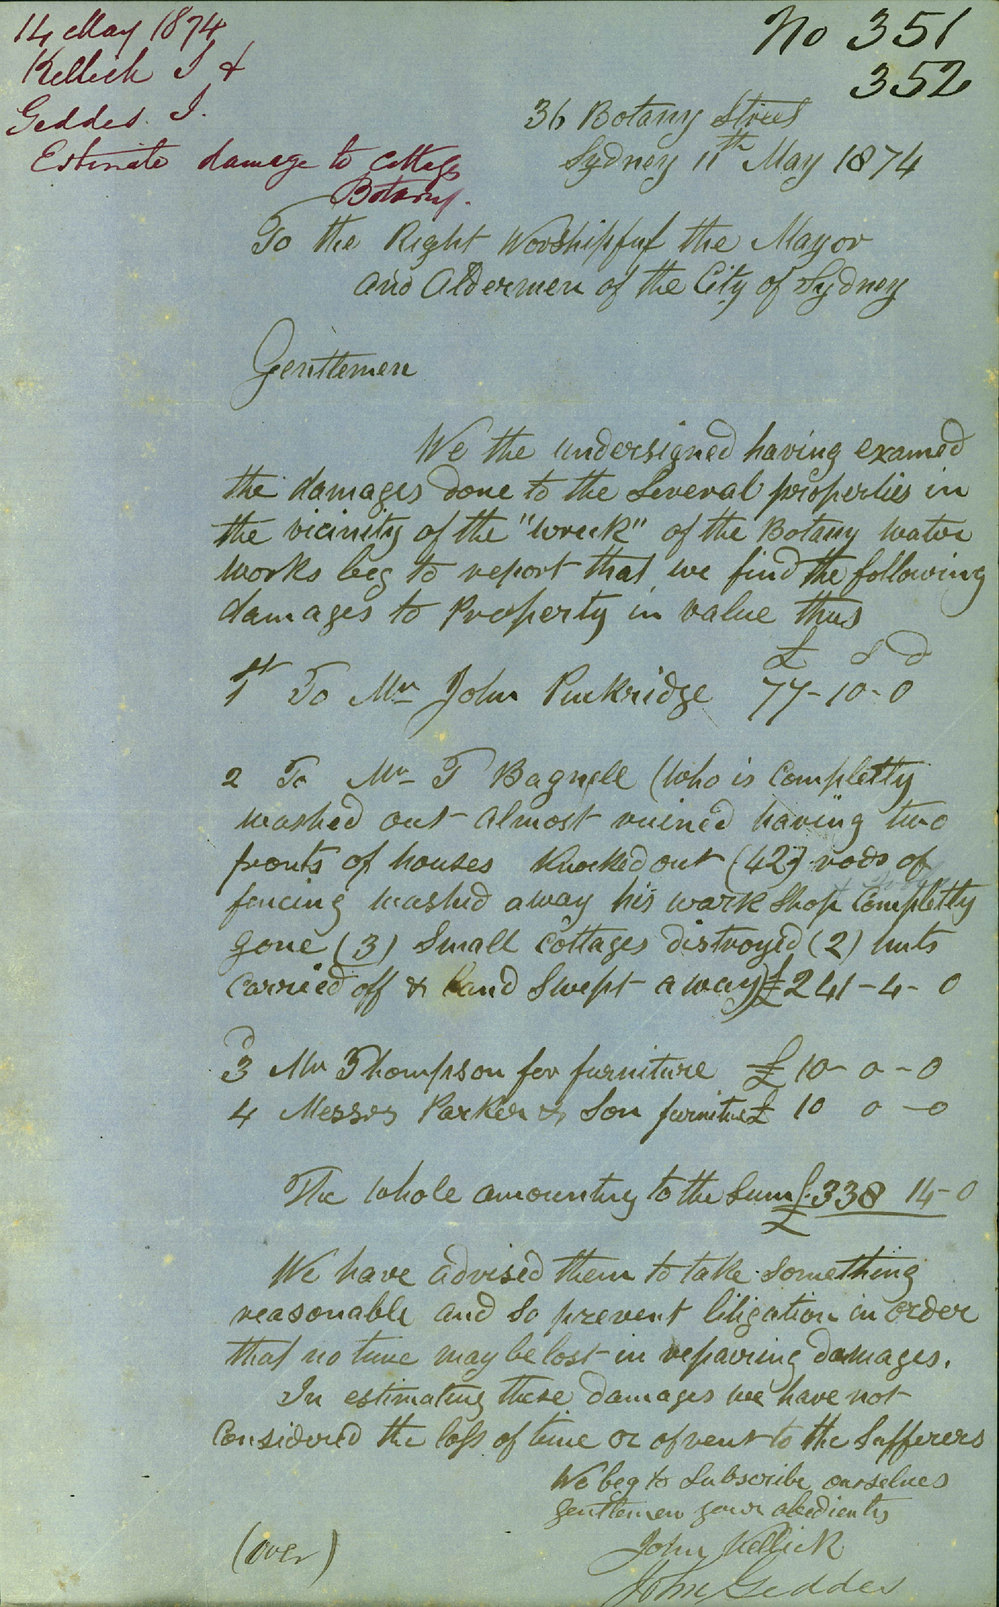 14 May 1874
Kellick J &
Geddes. J.
Estimate damage to cottages
Botany.
No 351
352
36 Botany Street
Sydney 11th May 1874
To the Right Worshipful the Mayor
and Aldermen of the City of Sydney
Gentlemen
We the undersigned having examed
the damages done to the Several properties in
the vicinity of the "wreck" of the Botany water
works beg to report that we find the following
damages to Property in value thus
£ s d
1st To Mr John Puckridge 77-10-0
2 To Mr T Bagnell (who is completty
washed out almost ruined having two
fronts of houses knocked out (42) rods of
fencing washed away his work Shop completty
gone (3) Small cottages distroyed (2) huts
carried off & land Swept away) £241-4-0
3 Mr Thompson for furniture £10-0-0
4 Messrs Parker & Son furniture £ 10 0-0
The whole amounting to the Sum £.338 14-0
£
We have advised them to take Something
reasonable and so prevent litigation in order
that no time may be lost in repairing damages.
In estimating these damages we have not
Considered the loss of time or of rent to the Sufferers
We beg to Subscribe ourselves
gentlemen your obediently
John Kellick
John Geddes
(over)